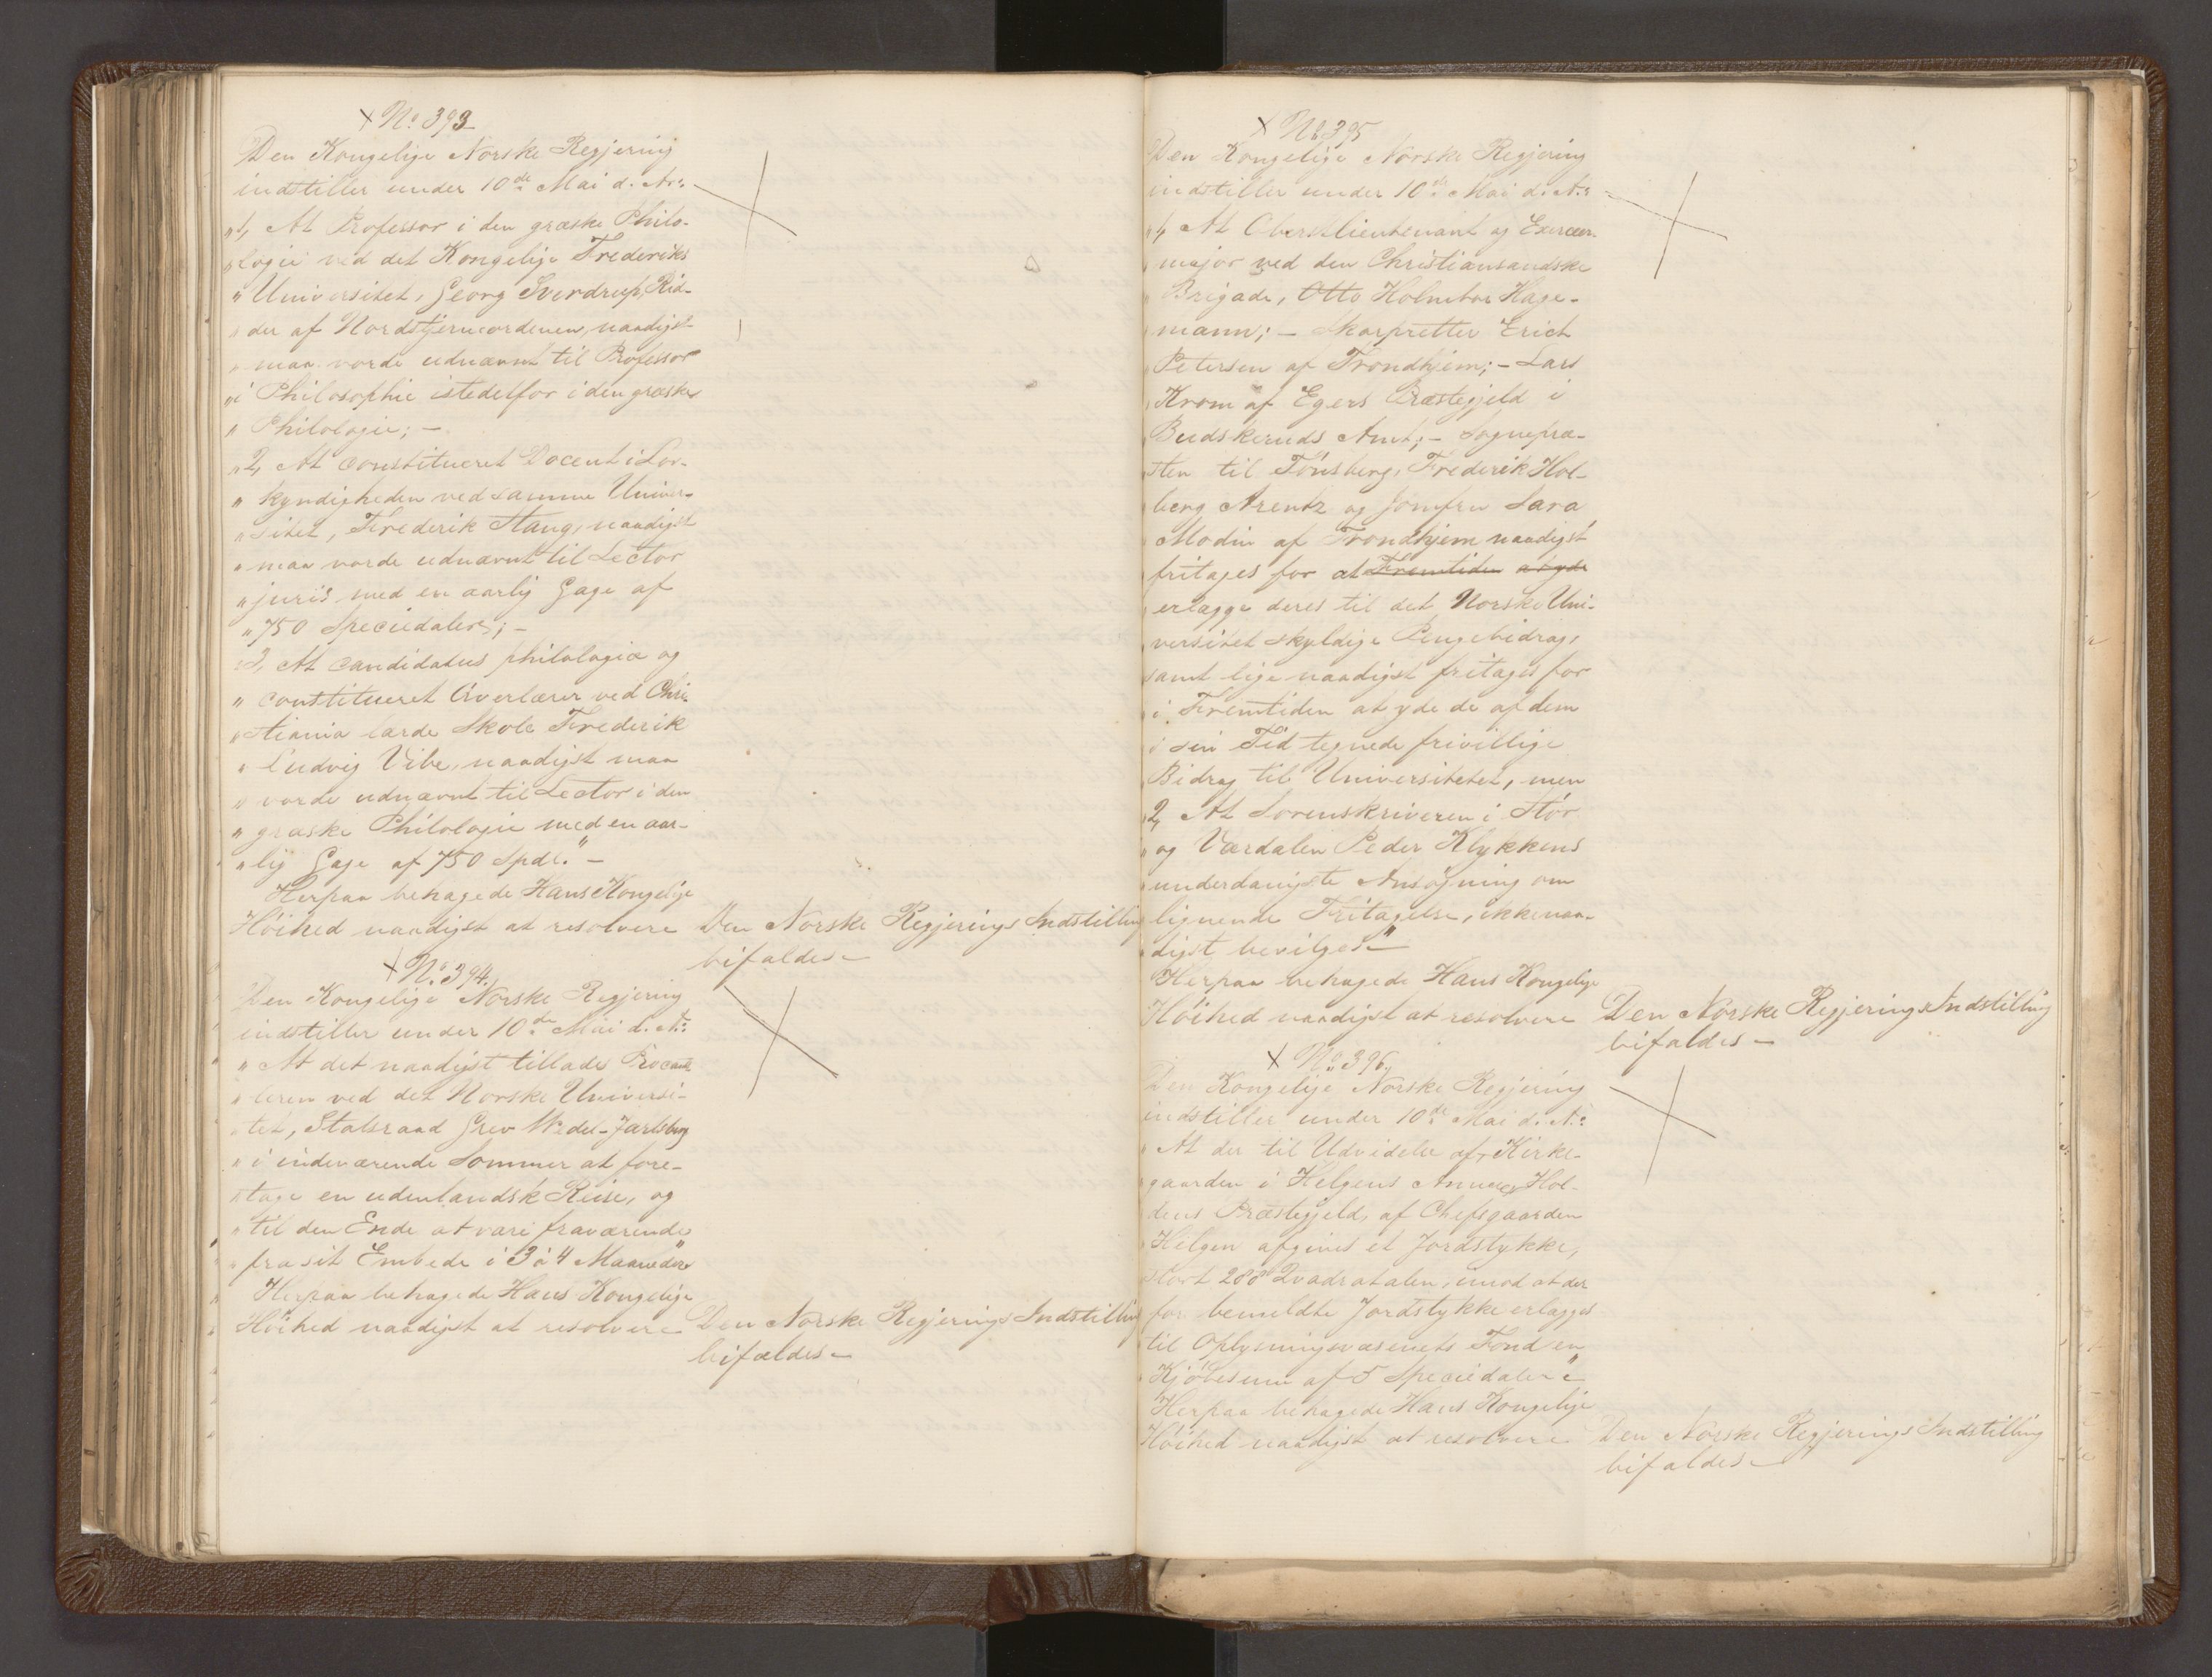 No 393
Den Kongelige Norske Regjering
indstiller under 10de Mai d. A.:
"1, At Professor i den græske Philo-
"logie ved det Kongelige Frederiks
"Universitet, Georg Sverdrup, Rid-
"der af Nordstjerneordenen, naadigst
"maa vorde udnævnt til Professor
"i Philosophie istedetfor i den græske
"Philologie; —
"2, At constitueret Docent i Lov-
"kyndigheden ved samme Univer-
"sitet, Frederik Stang, naadigst
"maa vorde udnævnt til Lector
"juris med en aarlig Gage af
"750 Speciedaler; —
"3, At Candidatus philologiæ og
"constitueret Overlærer ved Chri-
"stiania lærde Skole Frederik
"Ludvig Vibe, naadigst maa
"vorde udnævnt til Lector i den
"græske Philologie med en aar-
"lig Gage af 750 Spdlr." —
Herpaa behagede Hans Kongelige
Höihed naadigst at resolvere
Den Norske Regjerings Indstilling
bifaldes —
No 394.
Den Kongelige Norske Regjering
indstiller under 10de Mai d. A.:
"At det naadigst tillades Procant-
"leren ved det Norske Universi-
"tet, Statsraad Grev Wedel-Jarlsberg
"i indeværende Sommer at fore-
"tage en udenlandsk Reise, og
"til den Ende at være fraværende
"fra sit Embede i 3 à 4 Maaneder"
Herpaa behagede Hans Kongelige
Höihed naadigst at resolvere
Den Norske Regjerings Indstilling
bifaldes —
No 395
Den Kongelige Norske Regjering
indstiller under 10de Mai d. A.:
"1, At Oberstlieutenant og Exerceer-
"major ved den Christiansandske
"Brigade, Otto Holmboe Hage-
mann; — Skarpretter Erich
Petersen af Trondhjem; — Lars
Krom af Egers Præstegjeld i
Budskeruds Amt; — Sognepræ-
sten til Tönsberg, Frederik Hol-
berg Arentz og Jomfru Sara
Modin af Trondhjem naadigst
fritages for at Fremtiden at yde
erlægge deres til det Norske Uni-
versitet skyldige Pengebidrag,
samt lige naadigst fritages for
i Fremtiden at yde de af dem
i sin Tid tegnede frivillige
Bidrag til Universitetet, men
"2, At Sorenskriveren i Stör
"og Værdalen Peder Klykkens
"underdanigste Ansögning om
lignende Fritagelse, ikke naa-
digst bevilges" —
Herpaa behagede Hans Kongelige
Höihed naadigst at resolvere
Den Norske Regjerings Indstilling
bifaldes —
No 396,
Den Kongelige Norske Regjering
indstiller under 10de Mai d. A.:
"At der til Udvidelse af Kirke-
gaarden i Helgens Annex Hol-
dens Præstegjeld, af Chefsgaarden
Helgen afgives et Jordstykke,
stort 288 Qvadratalen, imod at der
for bemeldte Jordstykke erlægges
til Oplysningsvæsenets Fond en
Kjöbesum af 5 Speciedaler"
Herpaa behagede Hans Kongelige
Höihed naadigst at resolvere
Den Norske Regjerings Indstilling
bifaldes —